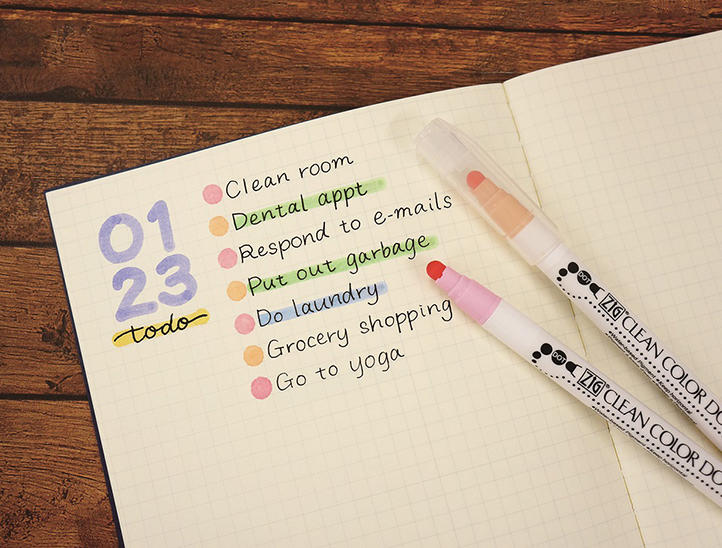 01
23
todo
Clean room
Dental appt
Respond to e-mails
Put out garbage
Do laundry
Grocery shopping
Go to yoga
DOT ZIG CLEAN COLOR DO
DOT ZIG CLEAN COLOR DO